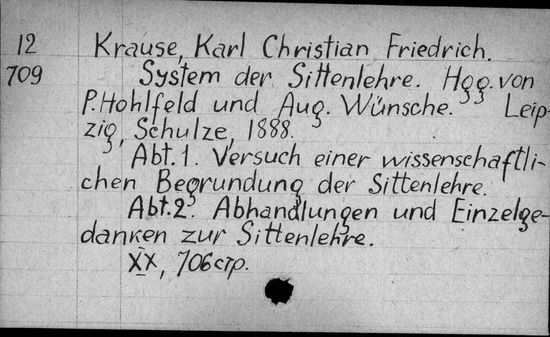 12 Krause, Karl Christian Friedrich.
709 System der Sittenlehre. Hgg. von
P. Hohlfeld und Aug. Wünsche. Leip-
zig, Schulze, 1888.
Abt. 1. Versuch einer wissenschaftli-
chen Begrundung der Sittenlehre.
Abt. 2. Abhandlungen und Einzelge-
danken zur Sittenlehre.
XX, 706 стр.